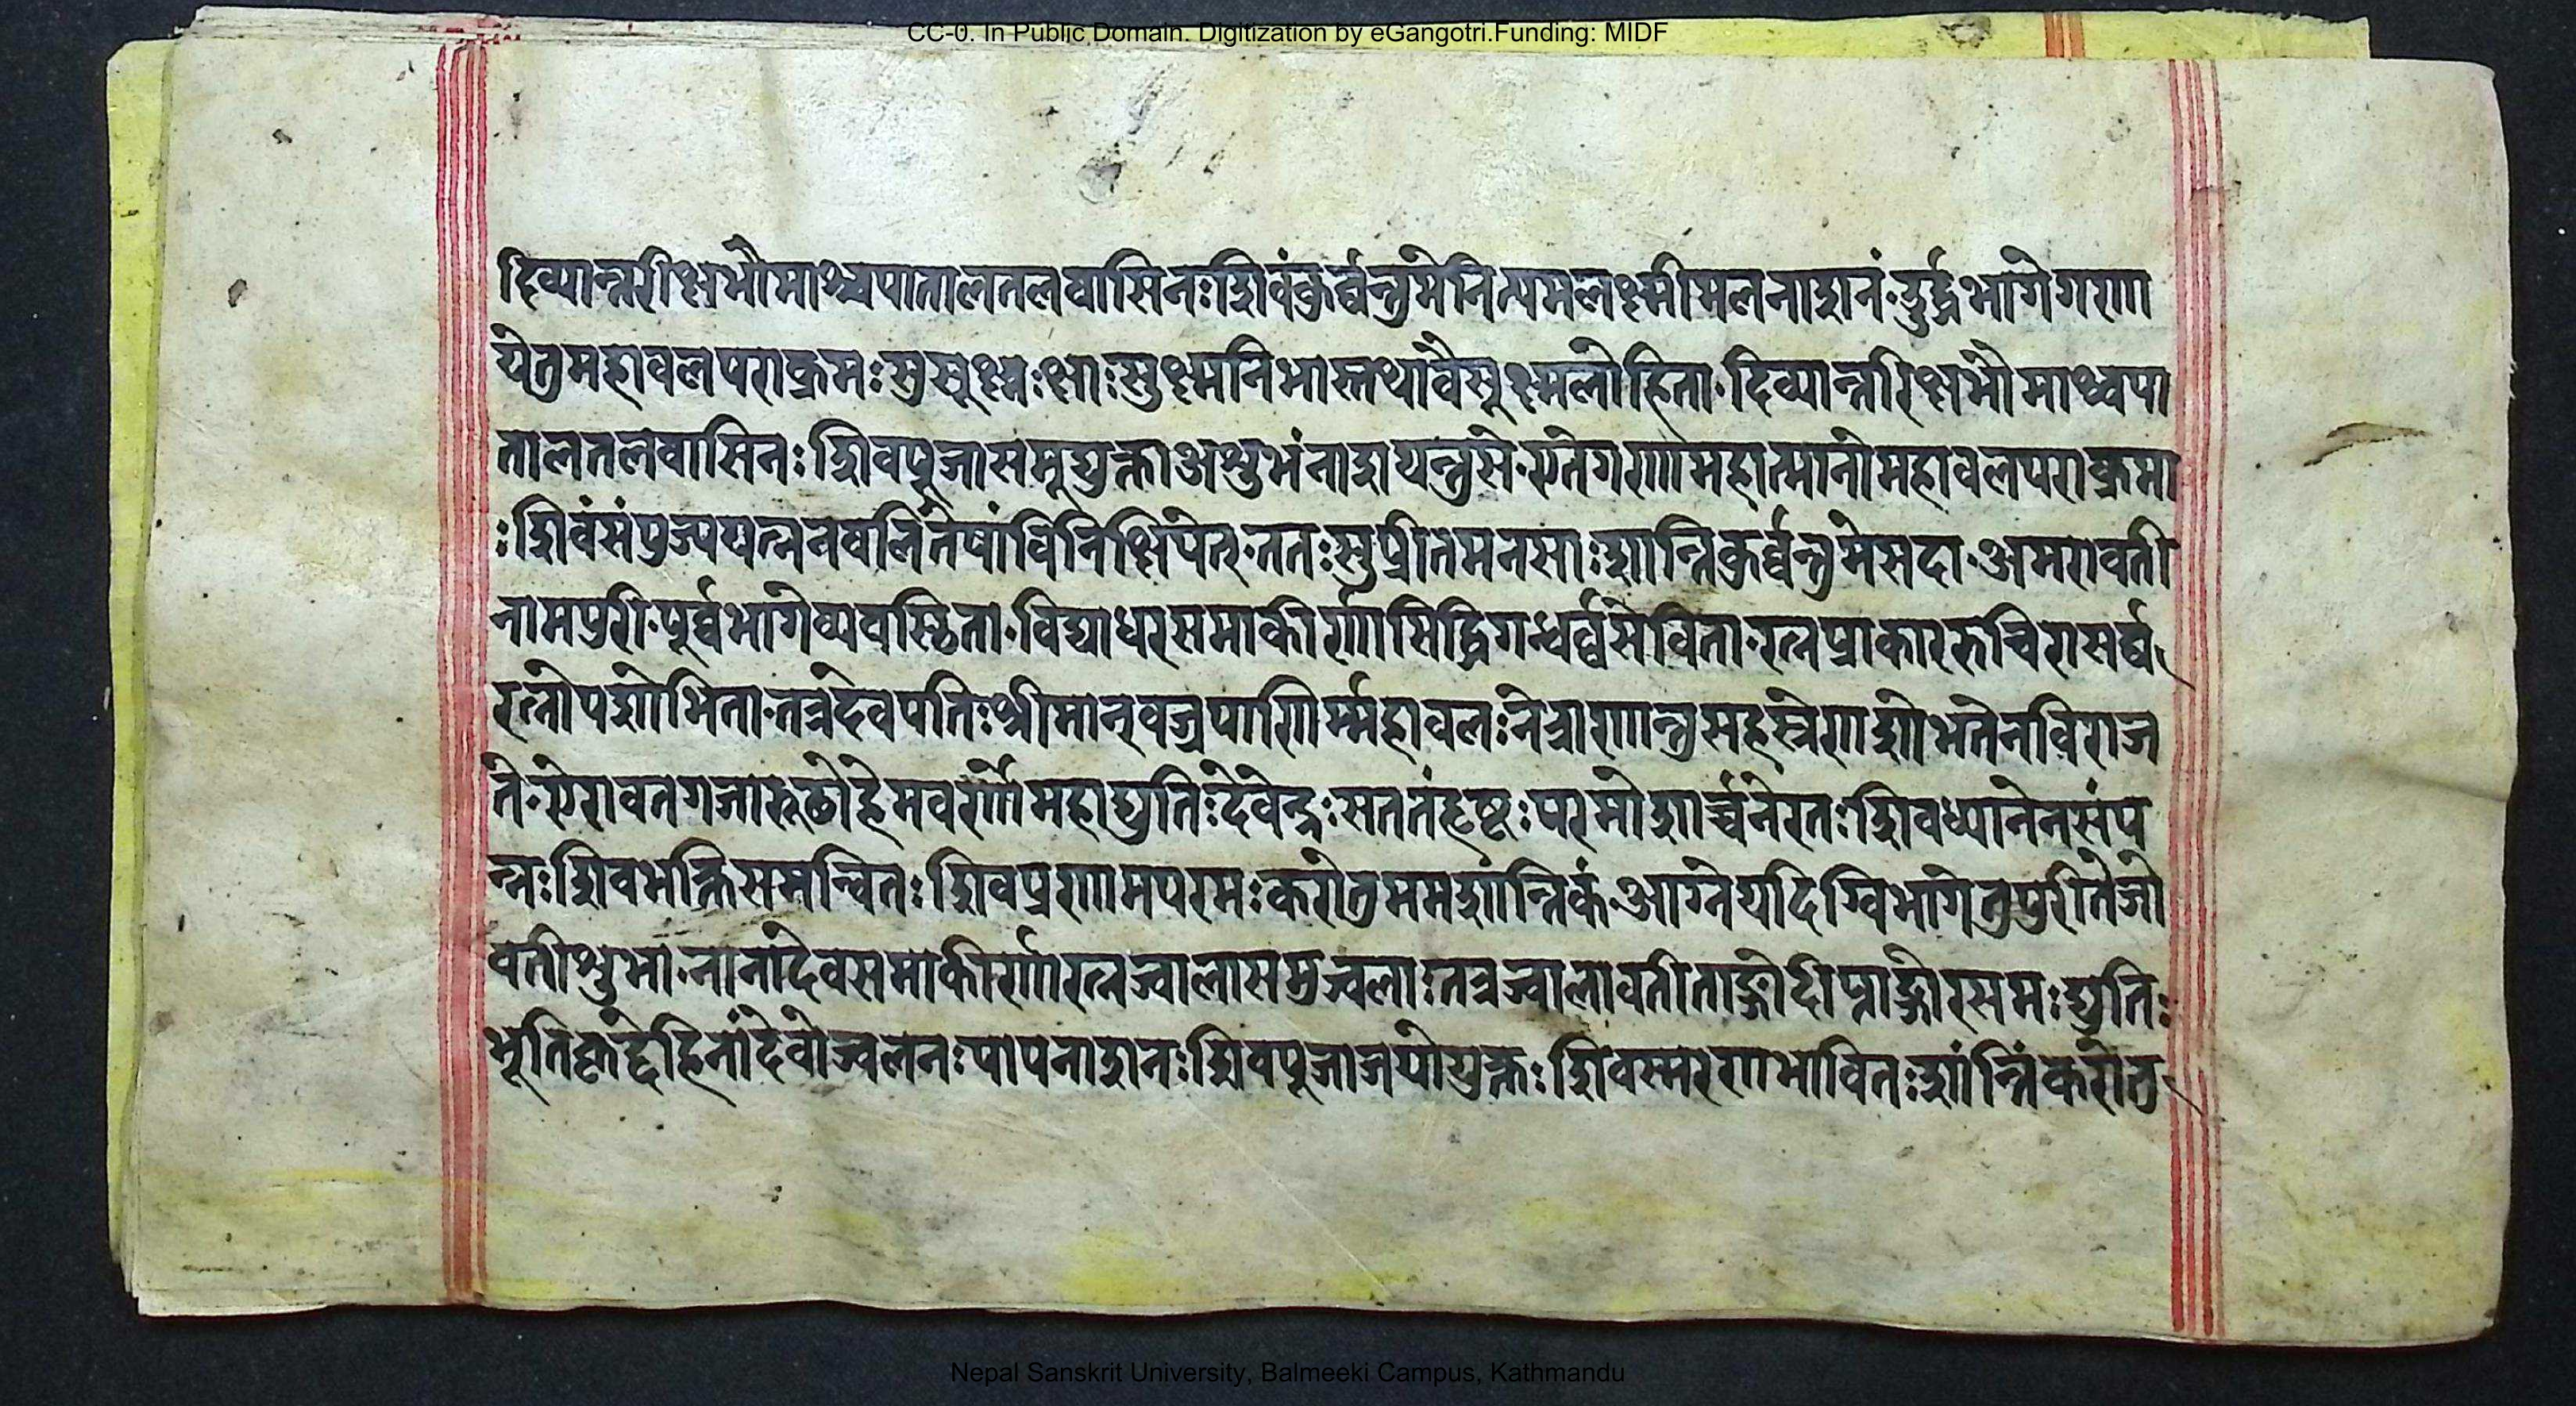 CC-0. In Public Domain. Digitization by eGangotri.Funding: MIDF
दिव्यान्तरीक्षभौमाश्चपातालतलवासिनःशिवंकुर्व्वन्तुमेनित्यमलक्ष्मीमलनाशनं·दुर्द्धभागेगणा
येतुमहावलपराक्रमःसुसूक्ष्मःक्षाःसुक्ष्मनिभास्तथावैसूक्ष्मलोहिता·दिव्यान्तरिक्षभौमाश्चपा
तालतलवासिनःशिवपूजासमूद्युक्ताअशुभंनाशयन्तुसे·एतेगणामहात्मानोमहावलपराक्रमा
ःशिवंसंपुज्ययत्नेनवलिंतेषांविनिक्षिपेत्·ततःसुप्रीतेमनसाःशान्तिकुर्व्वन्तुमेसदा·अमरावती
नामपुरी·पूर्व्वभागेव्यवस्थिता·विद्याधरसमाकीर्णासिद्धिगन्धर्व्वसेविता·रत्नप्राकाररुचिरासर्व्व
रत्नोपशोभिता·तत्रदेवपतिःश्रीमान्वज्रपाणिर्म्महावलःनेत्राणान्तुसहस्त्रेणशोभतेनविराज
ते·ऐरावतगजारूढोहेमवर्णोमहाद्युतिःदेवेन्द्रःसततंहृष्टःपरमोशार्च्चनेरतःशिवध्यानेनसंप
न्नःशिवभक्तिसमन्वितःशिवप्रणामपरमःकरोतुममशान्तिकं·आग्नेयदिग्विभागेतुपुरीतेजो
वतीशुभा·नानादेवसमाकीर्णारत्नज्वालासमुज्वलाःतत्रज्वालावतीताङ्गोदीप्ताङ्गारसमःद्युतिः
भूतिकृद्देहिनांदेवोज्वलनःपापनाशनःशिवपूजाजयोयुक्तःशिवस्मरणभावितःशांन्तिंकरोतु
Nepal Sanskrit University, Balmeeki Campus, Kathmandu